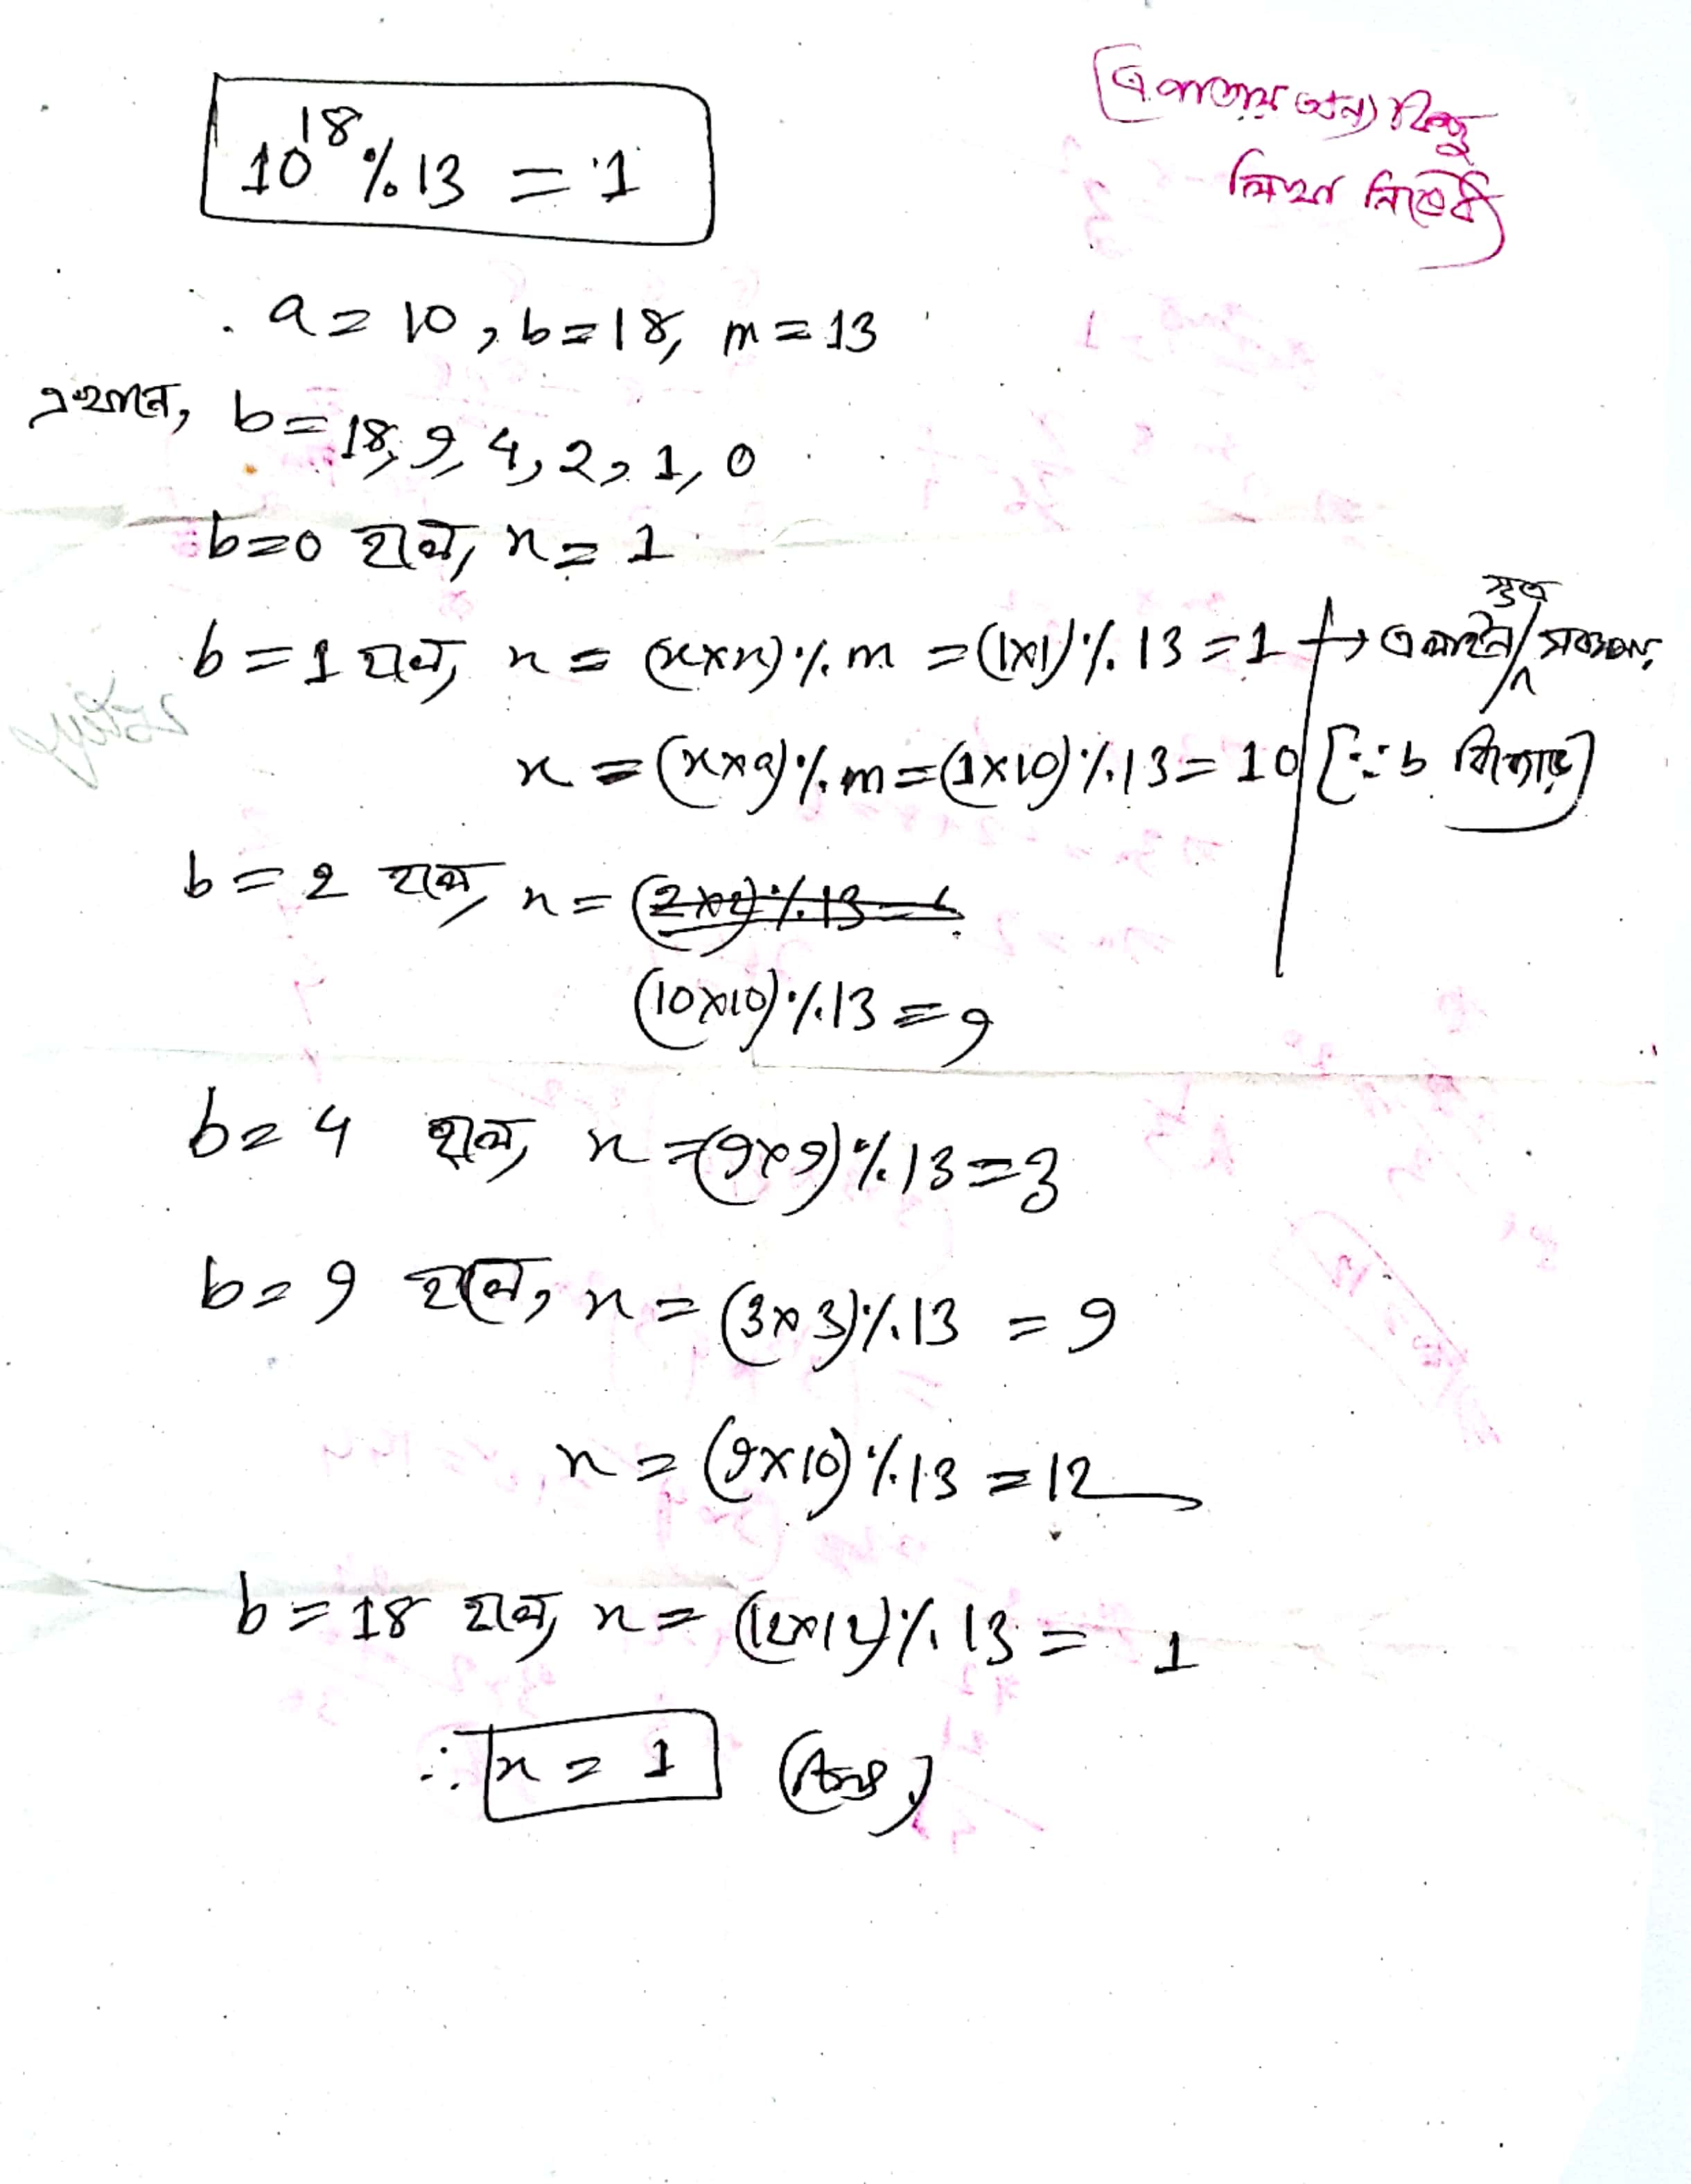 10^18 % 13 = 1
এ পাতায় অন্য কিছু
লিখা নিষেধ
a = 10, b = 18, m = 13
এখানে, b = 18, 9, 4, 2, 1, 0
b = 0 হলে, x = 1
b = 1 হলে, x = (x × x) % m = (1×1) % 13 = 1 → এ লাইন / সূত্র সবসময়
x = (x × a) % m = (1×10) % 13 = 10 [∵ b বিজোড়]
b = 2 হলে, x =
(10×10) % 13 = 9
b = 4 হলে, x = (9×9) % 13 = 3
b = 9 হলে, x = (3×3) % 13 = 9
x = (9×10) % 13 = 12
b = 18 হলে, x = (12×12) % 13 = 1
∴ x = 1 (Ans)